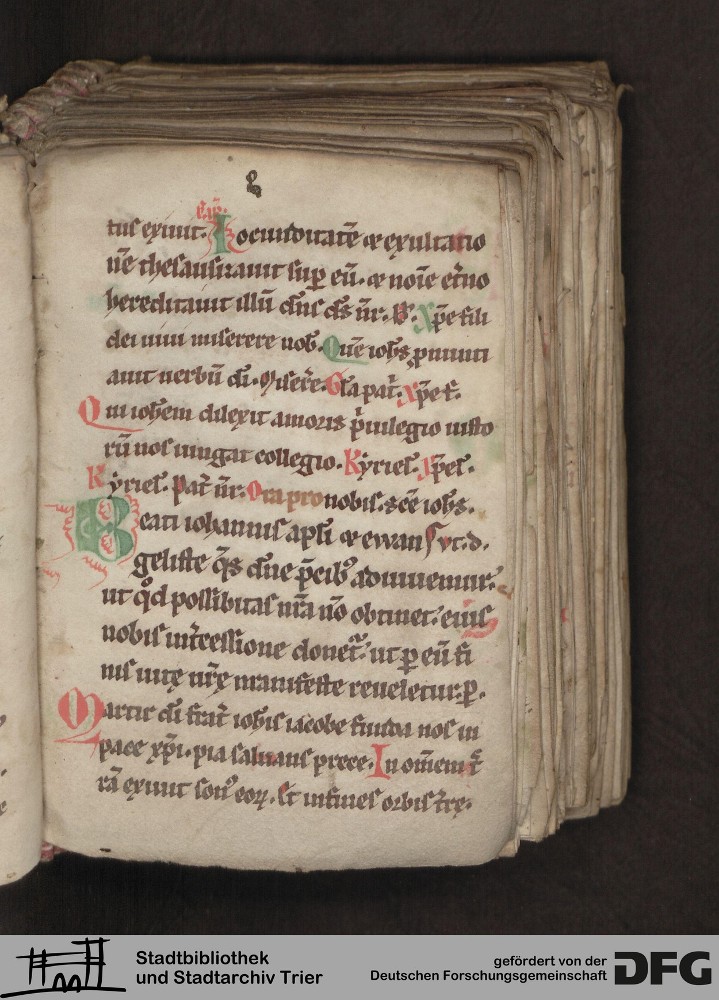 8
cap̄.
tus exiuit. Iocunditatē ⁊ exultatio
nē thesaurizauit sup̱ eū. ⁊ noīe et̄no
hereditauit illū dn̄s ds̄ nr̄. ℟. Xp̄e fili
dei uiui miserere nob. Quē iohs̄ pnunti
auit uerbū di. Miser̄e. Gła pat̄. Xp̄e f.
Qui ioh̄em dilexit amoris p̄uilegio iusto
rū nos iungat collegio. Kyriel. Xp̄el.
Kyriel. Pat̄ nr̄. Ora pro nobis. sc̄e iohs̄.
Beati iohannis apłi ⁊ ewan
geliste q̄s dn̄e p̄cib⁹ adiuuemur.
ut qd possibilitas nr̄a nō obtinet. eius
nobis int̄cessione donet̄. ut p̱ eū fi
nis uitę nr̄ę manifeste reueletur. p̱.
Martir di frat̄ iohis iacobe tuida nos in
pace xp̄i. pia saluans prece. In om̄em t̄
rā exiuit son⁹ eoꝝ. Et in fines orbis t̄rę.
Stadtbibliothek
und Stadtarchiv Trier
gefördert von der
Deutschen Forschungsgemeinschaft
DFG